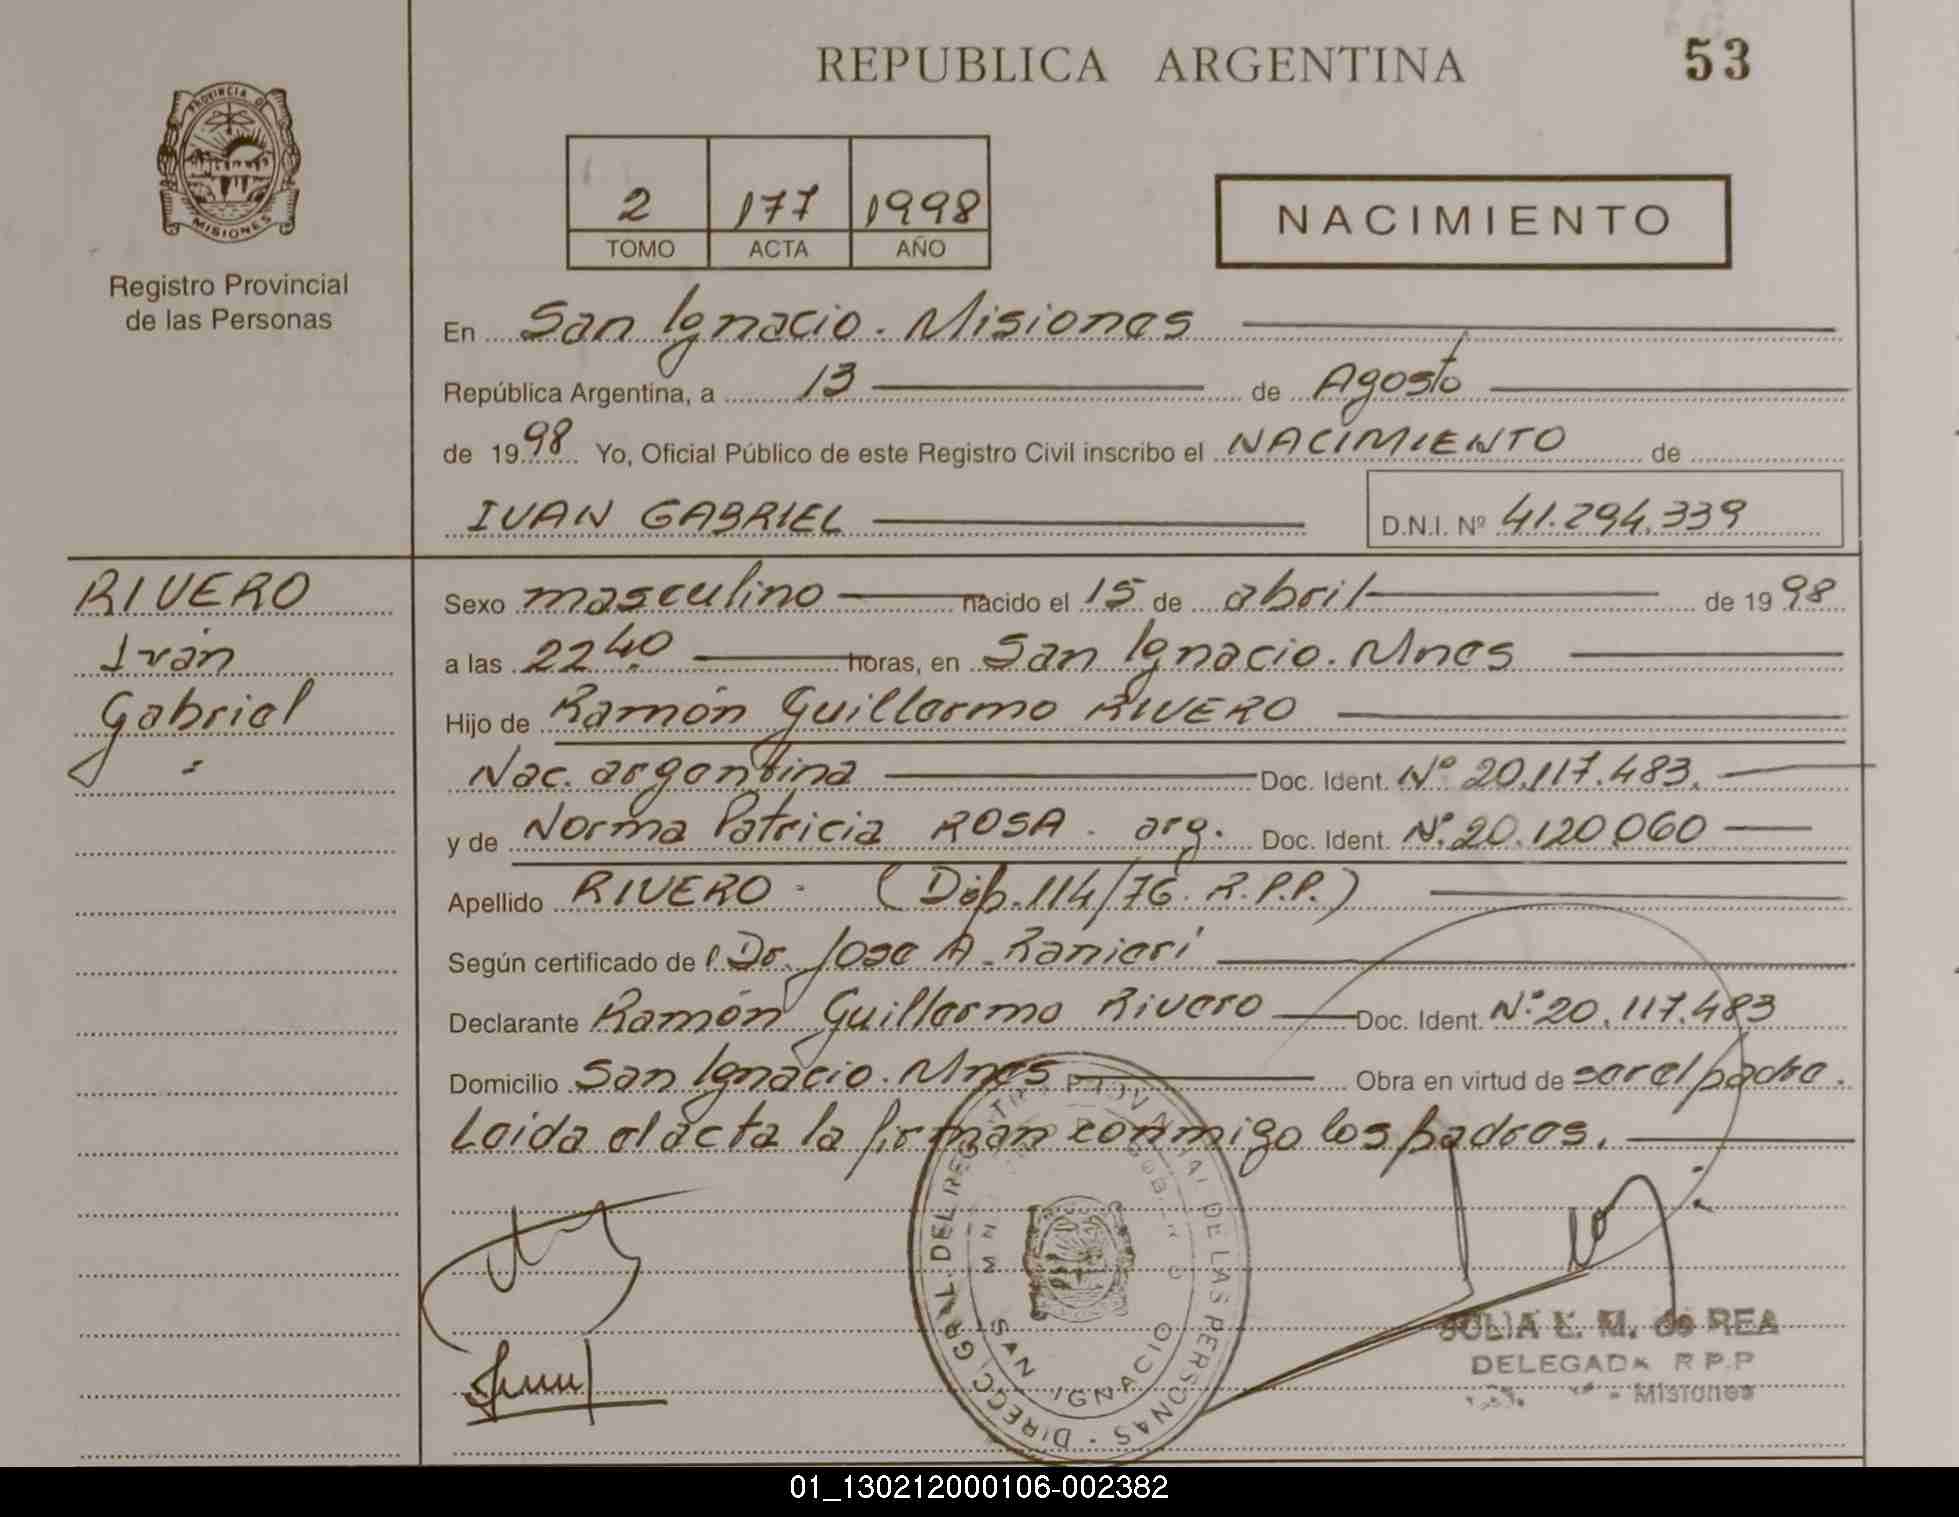 REPUBLICA ARGENTINA
53
PROVINCIA DE
MISIONES
Registro Provincial
de las Personas
2 177 1998
TOMO ACTA AÑO
NACIMIENTO
En San Ignacio. Misiones
República Argentina, a 13 de Agosto
de 1998 Yo, Oficial Público de este Registro Civil inscribo el NACIMIENTO de
IVAN GABRIEL
D.N.I. Nº 41.294.339
RIVERO
Iván
Gabriel
Sexo masculino nacido el 15 de abril de 1998
a las 22 40 horas, en San Ignacio. Mnes
Hijo de Ramón Guillermo RIVERO
Nac. argentina Doc. Ident. Nº 20.117.483.
y de Norma Patricia ROSA. arg. Doc. Ident. Nº 20.120.060
Apellido RIVERO - (Disp. 114/76. R.P.P.)
Según certificado de l Dr. Jose A. Ranieri
Declarante Ramón Guillermo Rivero Doc. Ident. Nº 20.117.483
Domicilio San Ignacio. Mnes Obra en virtud de ser el padre.
Leida el acta la firman conmigo los padres.
DIRECC GRAL DEL REGISTRO PROVINCIAL DE LAS PERSONAS
SAN IGNACIO
JULIA E. M. de REA
DELEGADA R.P.P
- Misiones
01_130212000106-002382